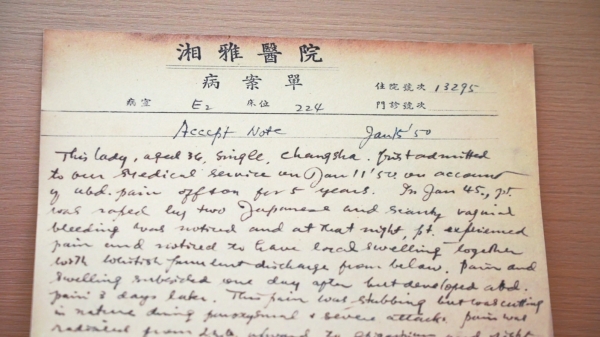 湘雅醫院
病案單
住院號次 13295
病室 E2 床位 224 門診號次
Accept Note Jan 15 '50
This lady, aged 36, single, Changsha. first admitted
to our medical service on Jan 11 '50. on account
of abd. pain off & on for 5 years. In Jan 45, pt.
was raped by two Japanese and scanty vaginal
bleeding was noticed and at that night, pt. experienced
pain and noticed to have local swelling together
with whitish purulent discharge from below. Pain and
swelling subsided one day after but developed abd.
pain 3 days later. This pain was stabbing but was cutting
in nature during paroxysmal & severe attacks. pain was
radiated from upward to epigastrium and right